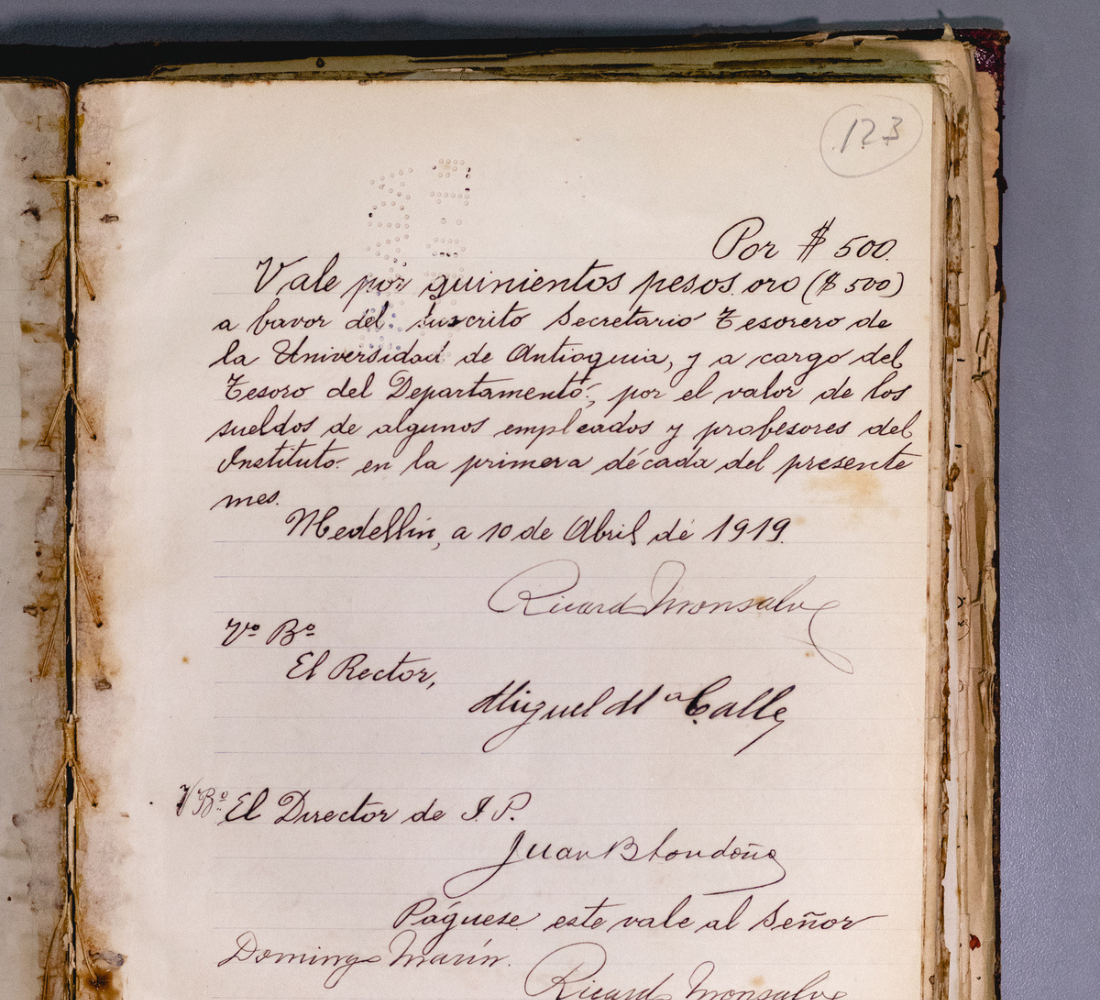 123
Por $ 500.
Vale por quinientos pesos oro ($ 500)
a favor del suscrito Secretario Tesorero de
la Universidad de Antioquia, y a cargo del
Tesoro del Departamento, por el valor de los
sueldos de algunos empleados y profesores del
Instituto en la primera década del presente
mes.
Medellín, a 10 de Abril de 1919.
Ricard Monsalve
Vº Bº
El Rector,
Miguel Mª Calle
VºBº El Director de I. P.
Juan B Londoño
Páguese este vale al Señor
Domingo Marín.
Ricard Monsalve